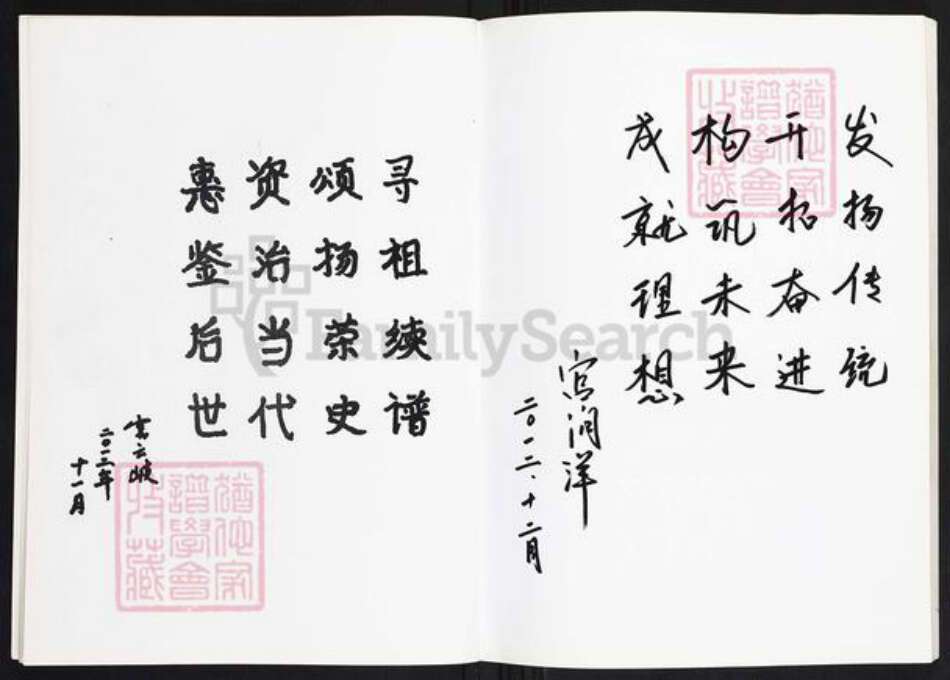 发扬传统
开拓奋进
构筑未来
成就理想
宫润洋
二〇一二.十二月
寻祖续谱
颂扬荣史
资治当代
惠鉴后世
宫云岐
二〇一二年
十一月
猶他家
譜學會
收藏
猶他家
譜學會
收藏
FamilySearch